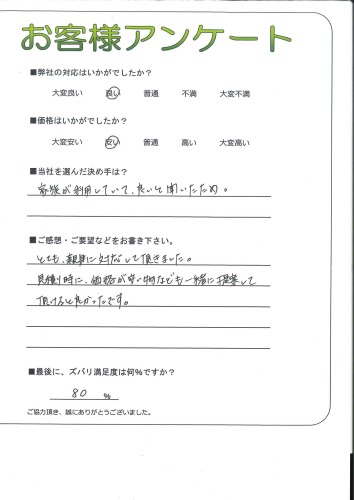 お客様アンケート
■弊社の対応はいかがでしたか？
大変良い 良い 普通 不満 大変不満
■価格はいかがでしたか？
大変安い 安い 普通 高い 大変高い
■当社を選んだ決め手は？
家族が利用していて、良いと聞いたため。
■ご感想・ご要望などをお書き下さい。
とても、親身に対応して頂きました。
見積り時に、価格が安い物なども一緒に提案して
頂けると良かったです。
■最後に、ズバリ満足度は何%ですか？
80 %
ご協力頂き、誠にありがとうございました。